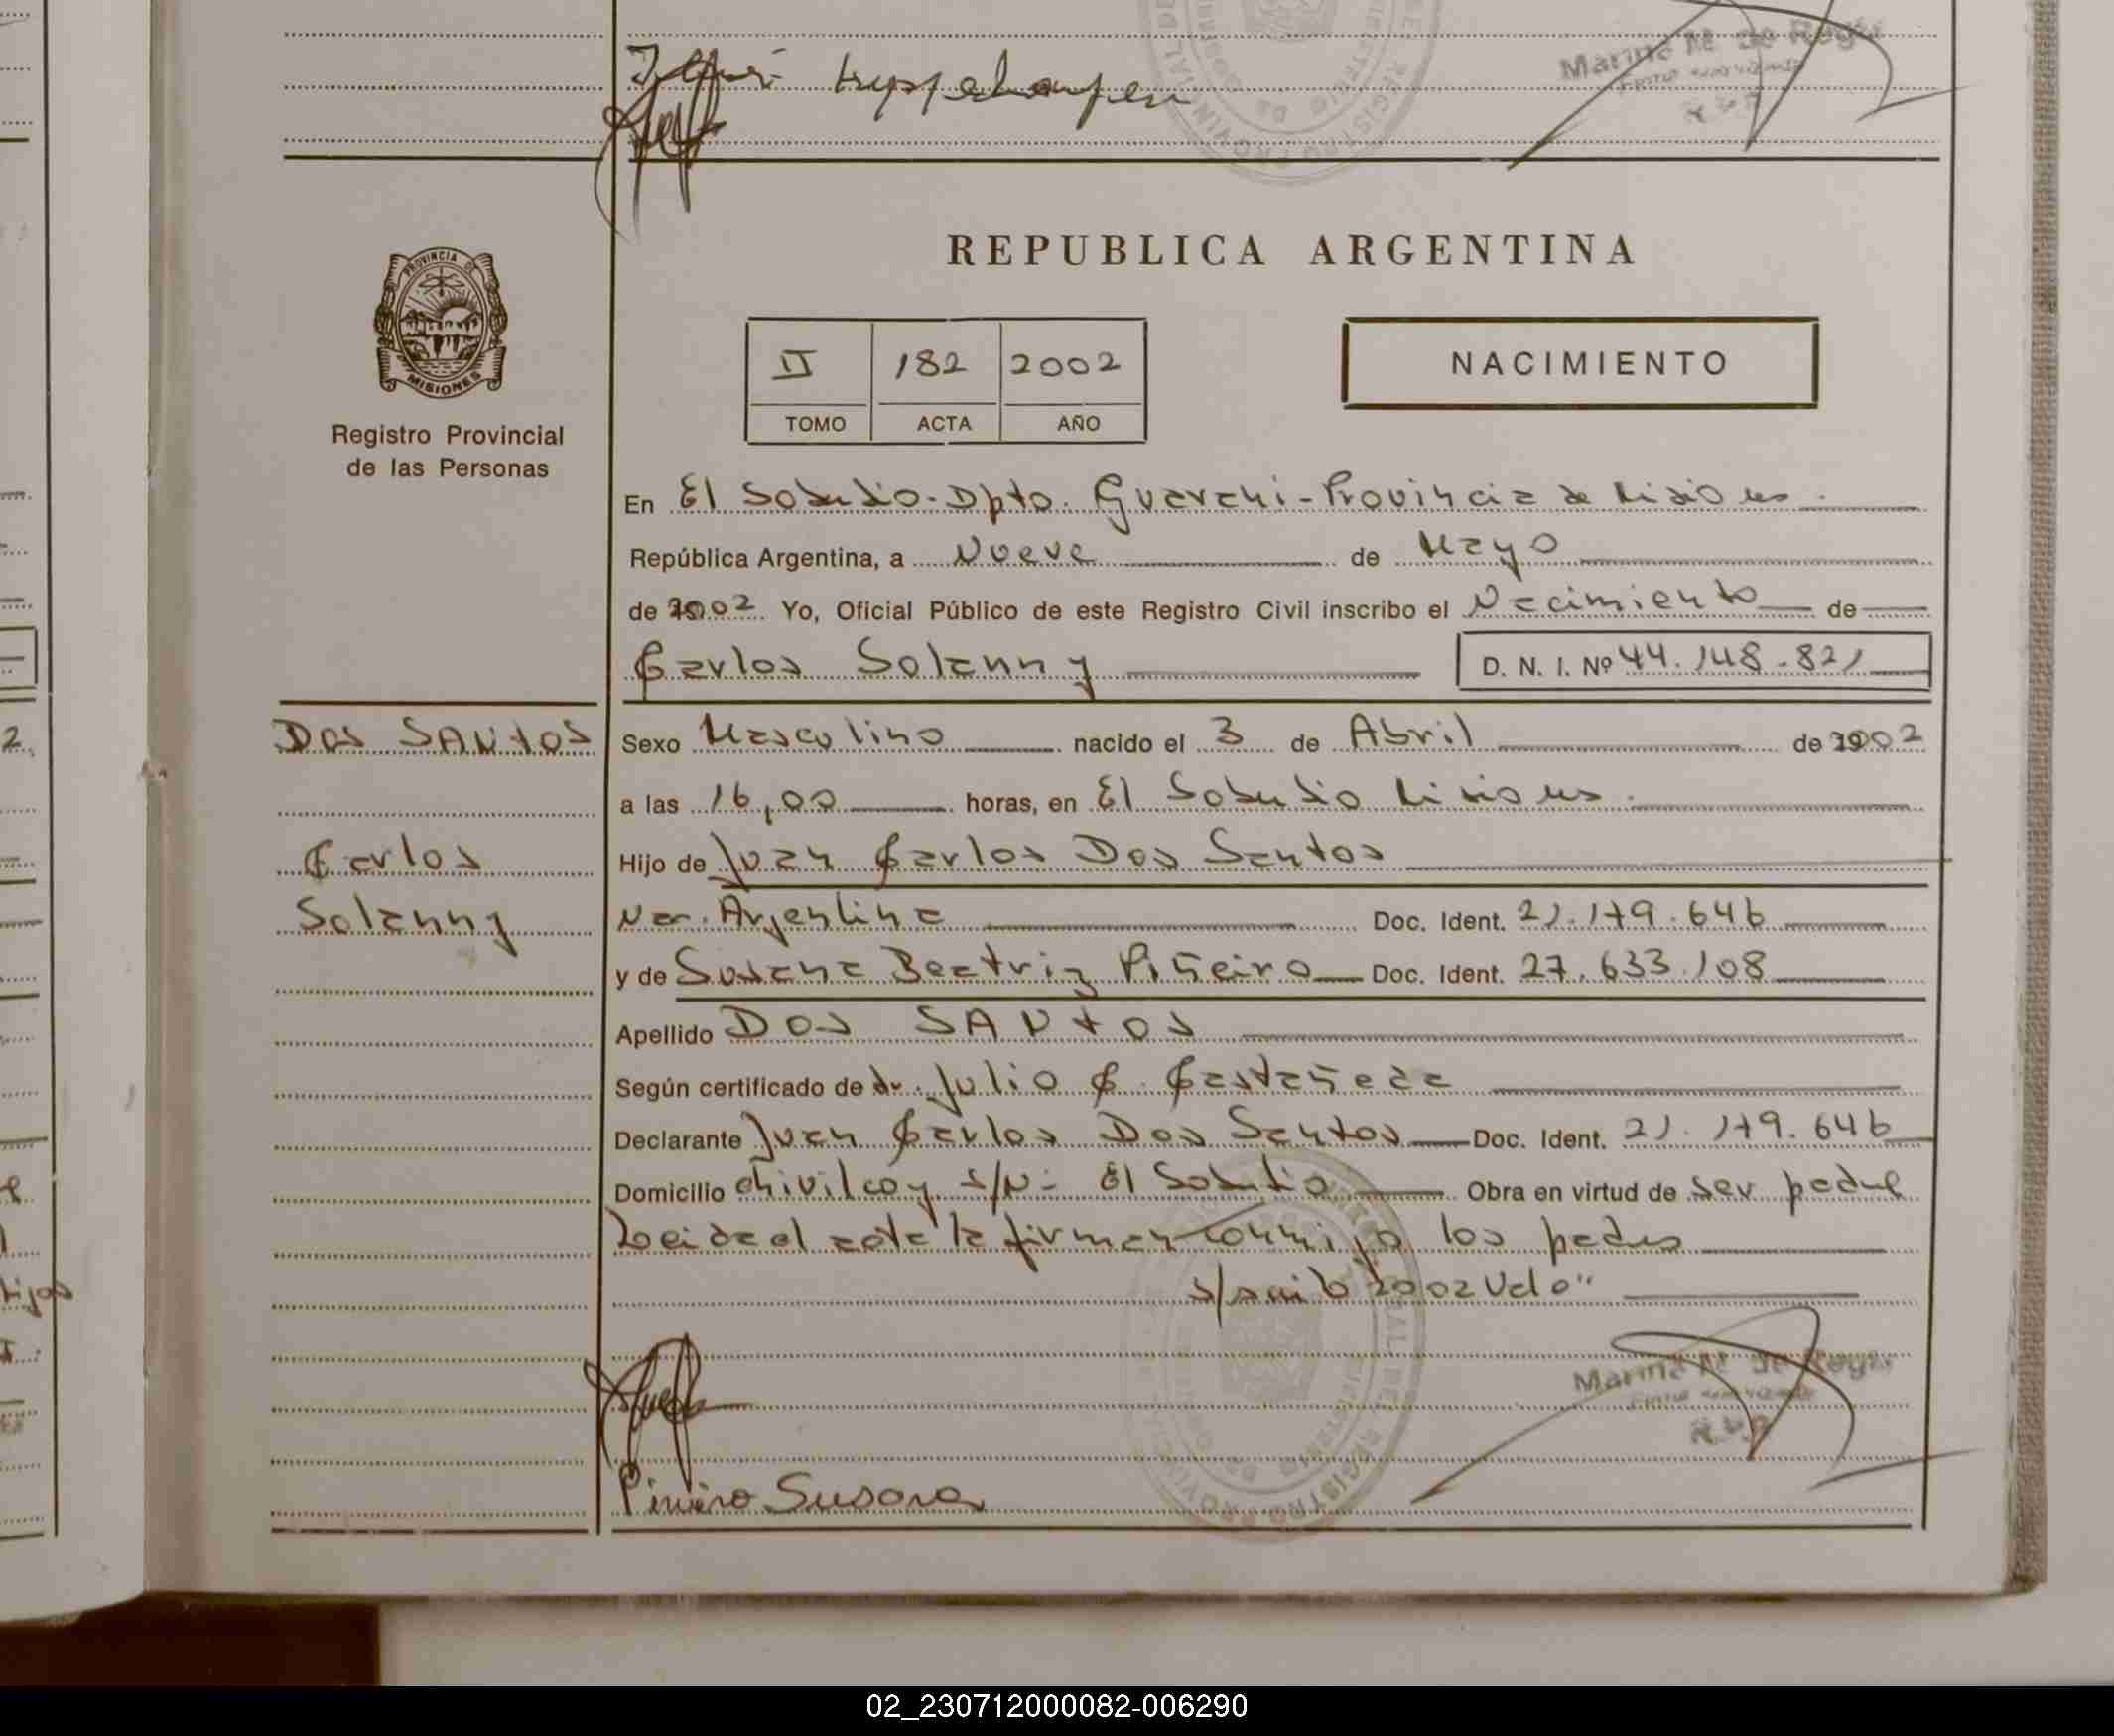 Marina M. de Reyes
REGISTRO PROVINCIAL
REPUBLICA ARGENTINA
PROVINCIA DE
MISIONES
Registro Provincial
de las Personas
II 182 2002
TOMO ACTA AÑO
NACIMIENTO
En El Soberbio - Dpto. Guarani - Provincia de Misiones.
República Argentina, a Nueve de Mayo
de 2002 Yo, Oficial Público de este Registro Civil inscribo el Nacimiento de
Carlos Solanny D. N. I. Nº 44.148.821
DOS SANTOS
Carlos
Solanny
Sexo Masculino nacido el 3 de Abril de 2002
a las 16,00 horas, en El Soberbio Misiones.
Hijo de Juan Carlos Dos Santos
Nac. Argentina Doc. Ident. 21.179.646
y de Susana Beatriz Piñeiro Doc. Ident. 27.633.108
Apellido DOS SANTOS
Según certificado de dr. Julio C. Castañeda
Declarante Juan Carlos Dos Santos Doc. Ident. 21.179.646
Domicilio Chivilcoy s/N - El Soberbio Obra en virtud de ser padre
Leida el acta la firman conmigo los padres
2002 Vale"
Marina M. de Reyes
Piniero Susana
02_230712000082-006290